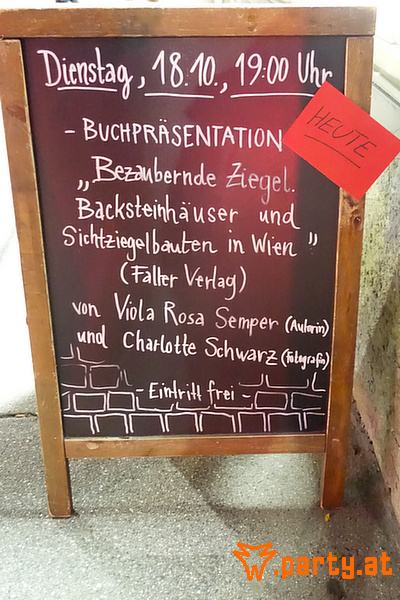 Dienstag, 18.10., 19:00 Uhr
HEUTE
- BUCHPRÄSENTATION
„Bezaubernde Ziegel.
Backsteinhäuser und
Sichtziegelbauten in Wien"
(Falter Verlag)
von Viola Rosa Semper (Autorin)
und Charlotte Schwarz (Fotografin)
- Eintritt frei -
w.party.at